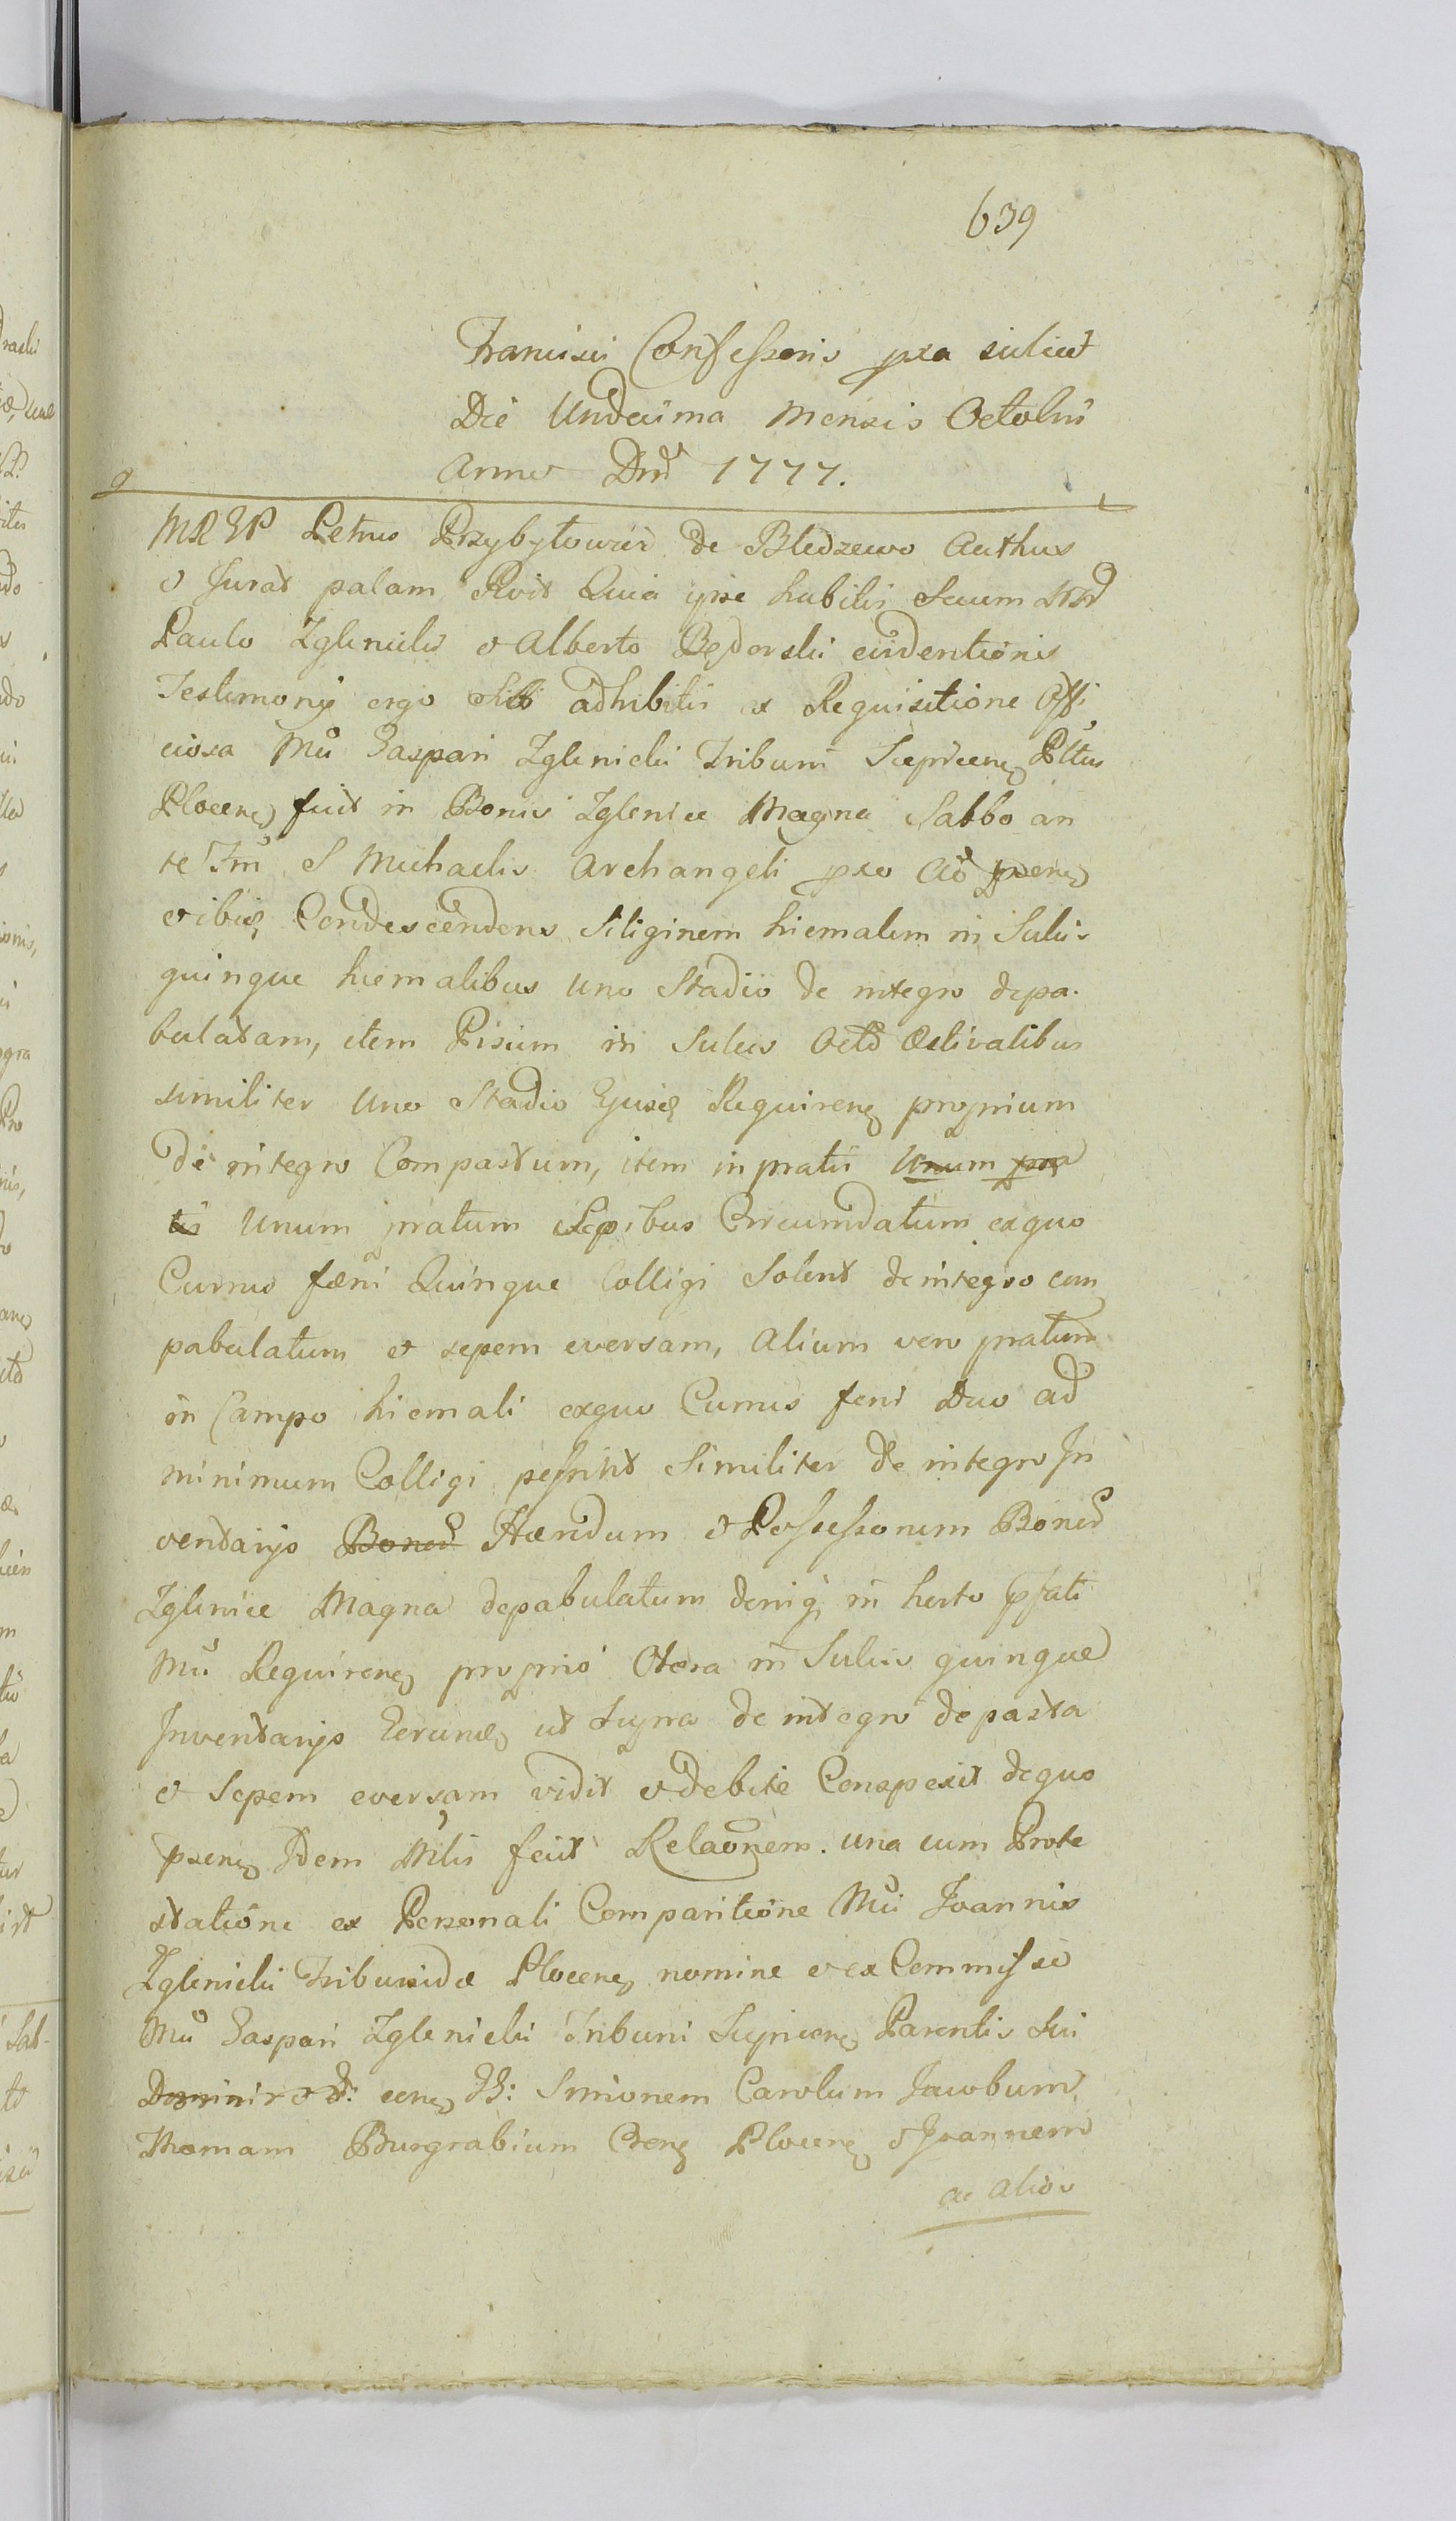 639
Francisci Confessoris pxa scilicet
Die Undecima Mensis Octobris
Anno Dni 1777.
MREP Petrus Przybyłowicz de Bledzewo Authus
et Jurat palam Rvit Quia ipse habitis Secum
Paulo Zglenicki et Alberto Bęđorski evidentionis
Testimonij ergo Sibi adhibitis ex Requisitione Offi
ciosa Mci Gaspari Zglenicki Tribuni Sieprcen Plttus
Plocen fuit in Bonis Zglenice Magna Sabbo an
te Ftm S Michaelis Archangeli pxo Ad
Condescendens Siliginem hiemalem in Sulcis
quinque hiemalibus Uno Stadio de integro depa
bulatam, item Pisum in Sulcis Octo Æstivalibus
similiter Uno Stadio Ejusd Requiren proprium
de integro Compastum, item in pratis Unum pra
tis Unum pratum Sepibus Circumdatum exquo
Currus fœni Quinque Colligi Solent de integro com
pabulatum et sepem eversam, Alium vero pratum
in Campo hiemali exquo Currus feni Duo ad
minimum Colligi possint Similiter de integro In
ventarijo Bonor Hæredum et Possessorum Bonor
Zglenice Magna depabulatum deniq in horto pfati
Mci Requiren proprio Olera in Sulcis quinque
Inventarijo Eerund ut Supra de integro depasta
et Sepem eversam vidit et debite Conspexit dequo
pxens Idem Mlis fecit Relaonem. una cum Prote
statione ex Personali Comparitione Mci Joannis
Zglenicki Tribunidæ Plocen nomine et ex Commisso
Mci Gaspari Zglenicki Tribuni Sieprcen Parentis Sui
cong GG: Simonem Carolum Jacobum
Thomam Burgrabium Cren Plocen et Joannem
ac alios